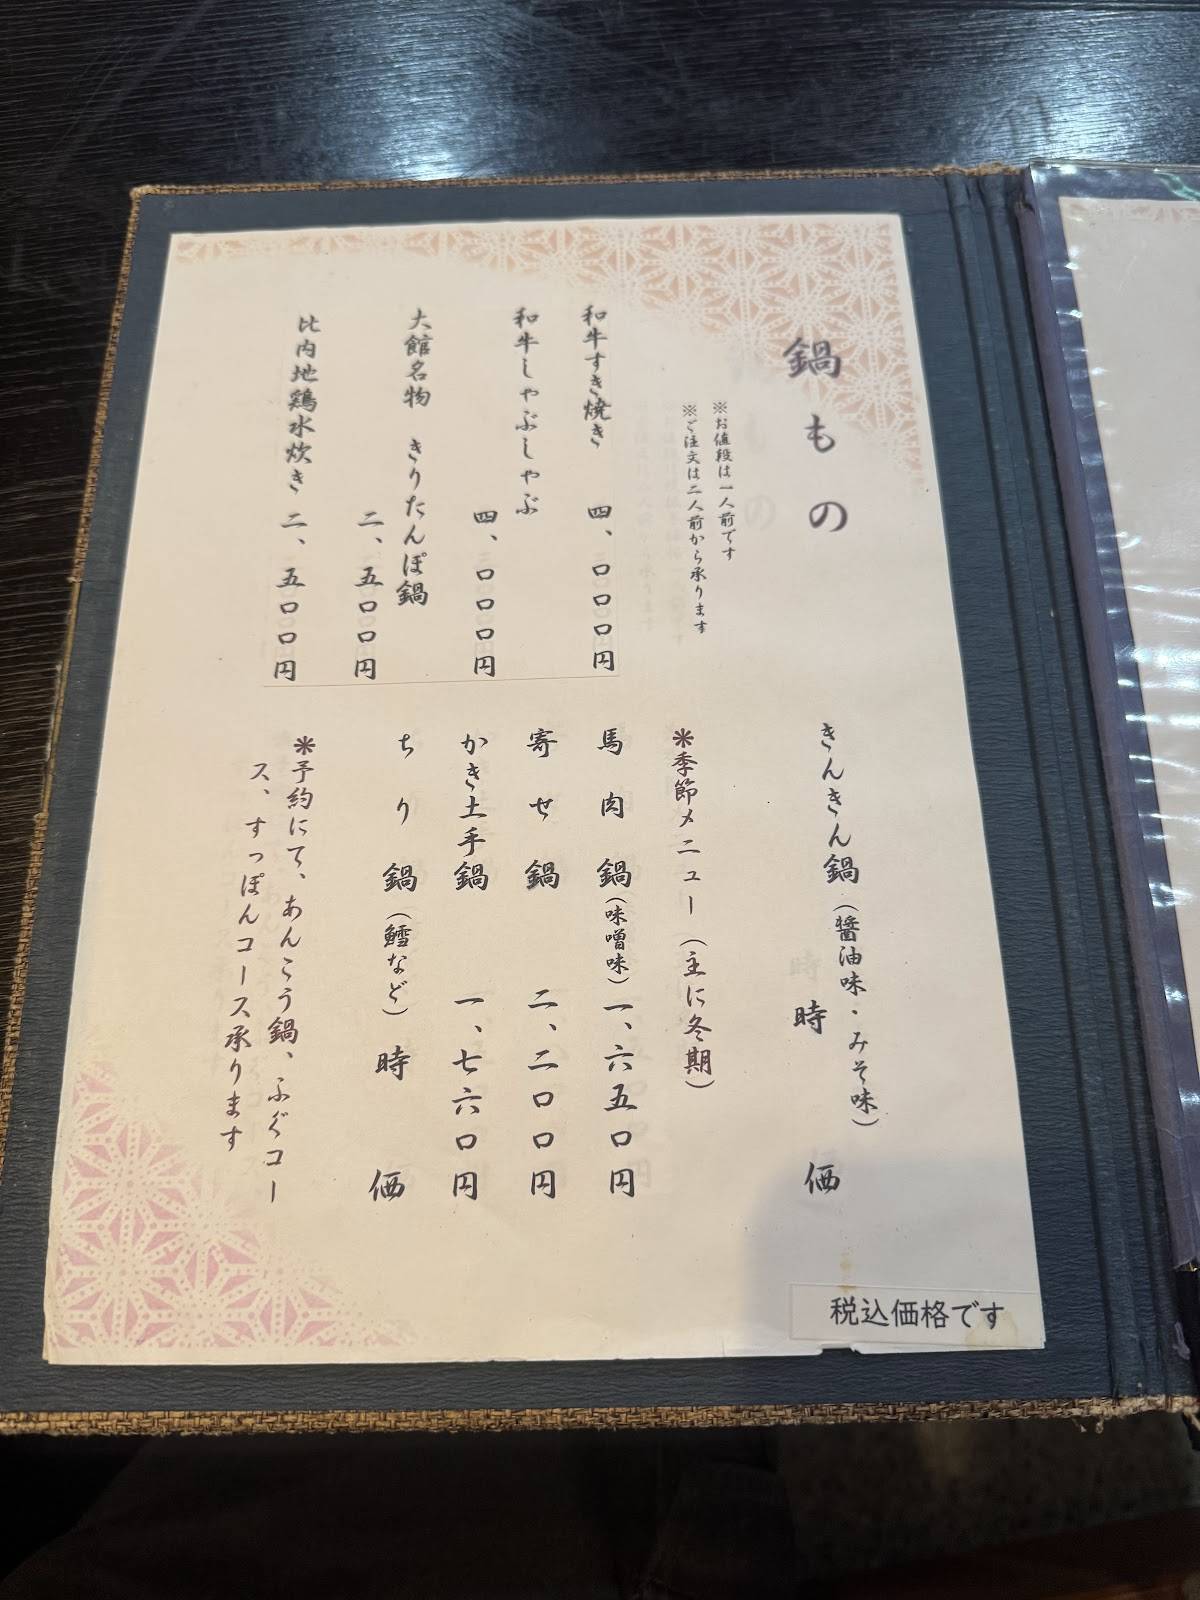 鍋もの
※お値段は一人前です
※ご注文は二人前から承ります
和牛すき焼き
四、〇〇〇円
和牛しゃぶしゃぶ
四、〇〇〇円
大館名物 きりたんぽ鍋
二、五〇〇円
比内地鶏水炊き 二、五〇〇円
きんきん鍋(醤油味・みそ味)
時価
*季節メニュー(主に冬期)
馬肉鍋(味噌味)一、六五〇円
寄せ鍋 二、二〇〇円
かき土手鍋 一、七六〇円
ちり鍋(鱈など) 時価
*予約にて、あんこう鍋、ふぐコー
ス、すっぽんコース承ります
税込価格です